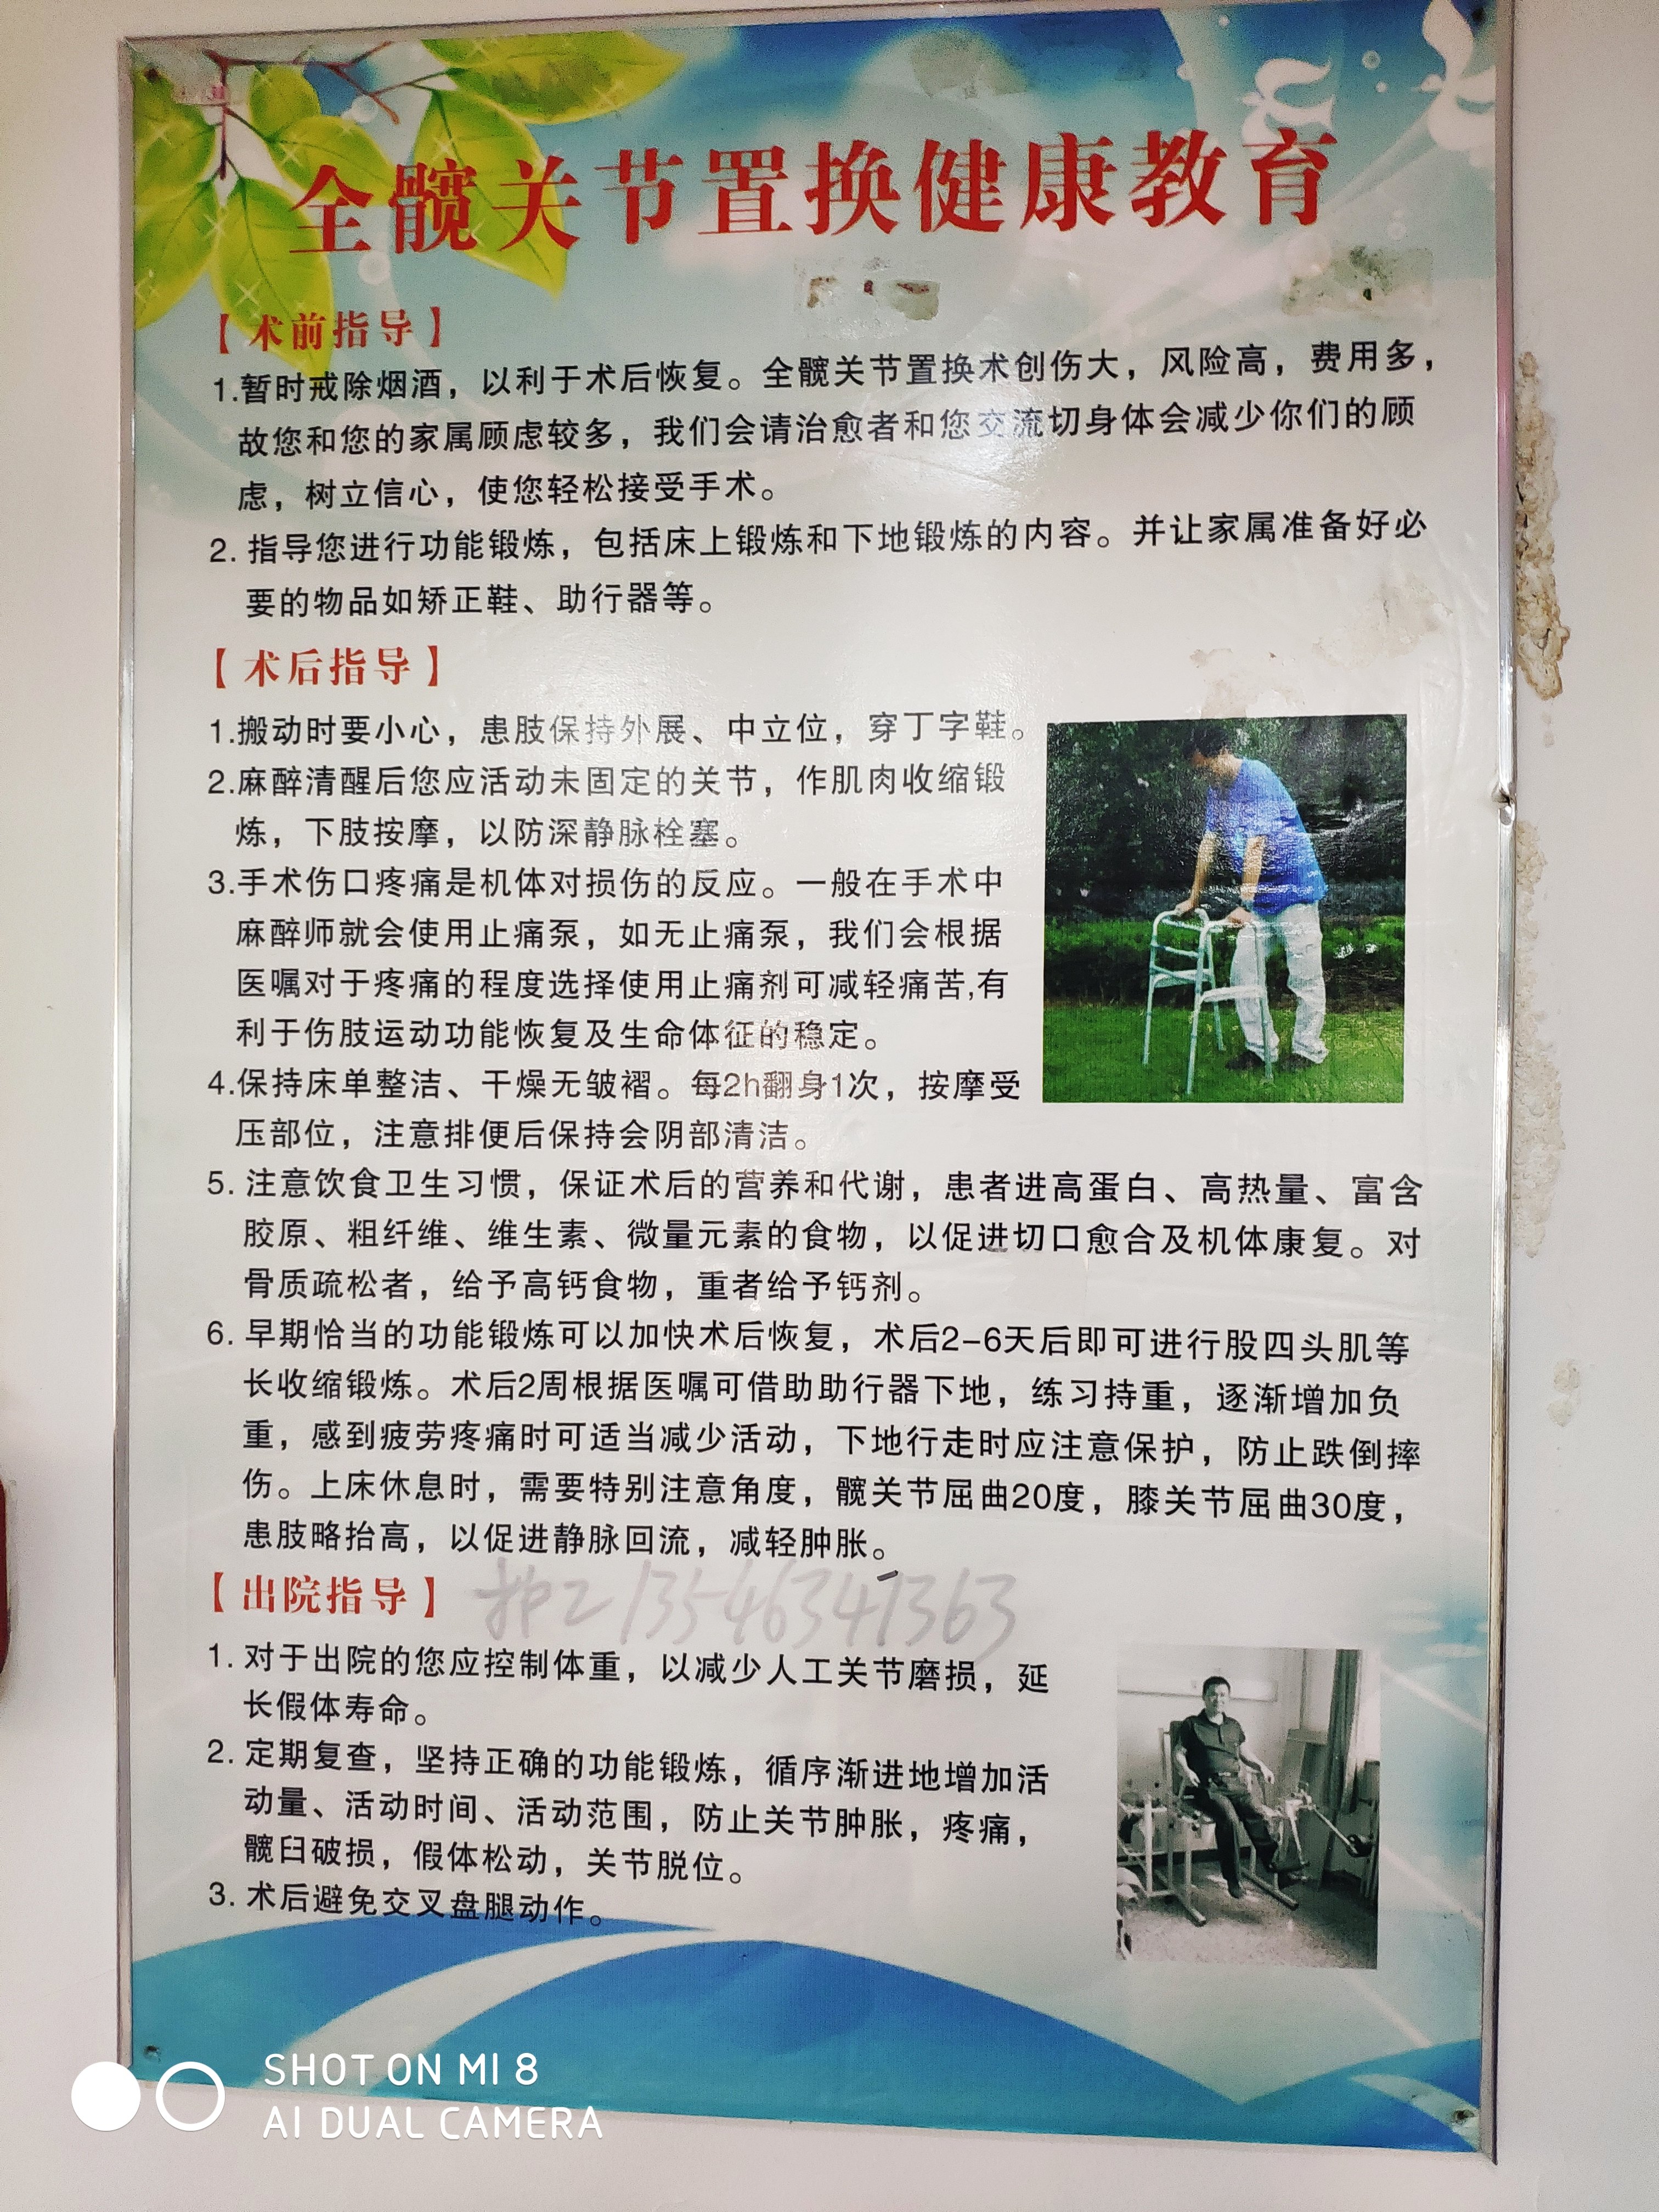 全髋关节置换健康教育
【术前指导】
1.暂时戒除烟酒，以利于术后恢复。全髋关节置换术创伤大，风险高，费用多，
故您和您的家属顾虑较多，我们会请治愈者和您交流切身体会减少你们的顾
虑，树立信心，使您轻松接受手术。
2. 指导您进行功能锻炼，包括床上锻炼和下地锻炼的内容。并让家属准备好必
要的物品如矫正鞋、助行器等。
【术后指导】
1.搬动时要小心，患肢保持外展、中立位，穿丁字鞋。
2.麻醉清醒后您应活动未固定的关节，作肌肉收缩锻
炼，下肢按摩，以防深静脉栓塞。
3.手术伤口疼痛是机体对损伤的反应。一般在手术中
麻醉师就会使用止痛泵，如无止痛泵，我们会根据
医嘱对于疼痛的程度选择使用止痛剂可减轻痛苦,有
利于伤肢运动功能恢复及生命体征的稳定。
4.保持床单整洁、干燥无皱褶。每2h翻身1次，按摩受
压部位，注意排便后保持会阴部清洁。
5. 注意饮食卫生习惯，保证术后的营养和代谢，患者进高蛋白、高热量、富含
胶原、粗纤维、维生素、微量元素的食物，以促进切口愈合及机体康复。对
骨质疏松者，给予高钙食物，重者给予钙剂。
6. 早期恰当的功能锻炼可以加快术后恢复，术后2-6天后即可进行股四头肌等
长收缩锻炼。术后2周根据医嘱可借助助行器下地，练习持重，逐渐增加负
重，感到疲劳疼痛时可适当减少活动，下地行走时应注意保护，防止跌倒摔
伤。上床休息时，需要特别注意角度，髋关节屈曲20度，膝关节屈曲30度，
患肢略抬高，以促进静脉回流，减轻肿胀。
【出院指导】
护工13546341363
1. 对于出院的您应控制体重，以减少人工关节磨损，延
长假体寿命。
2. 定期复查，坚持正确的功能锻炼，循序渐进地增加活
动量、活动时间、活动范围，防止关节肿胀，疼痛，
髋臼破损，假体松动，关节脱位。
3. 术后避免交叉盘腿动作。
SHOT ON MI 8
AI DUAL CAMERA